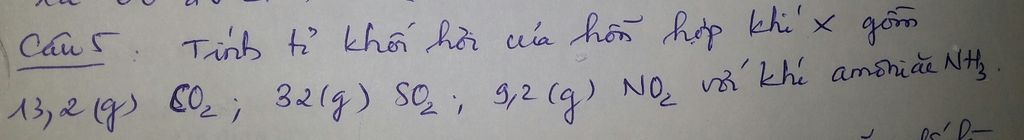 Câu 5. Tính tỉ khối hơi của hỗn hợp khí X gồm
13,2 (g) CO2; 32 (g) SO2; 9,2 (g) NO2 với khí amôniăc NH3.